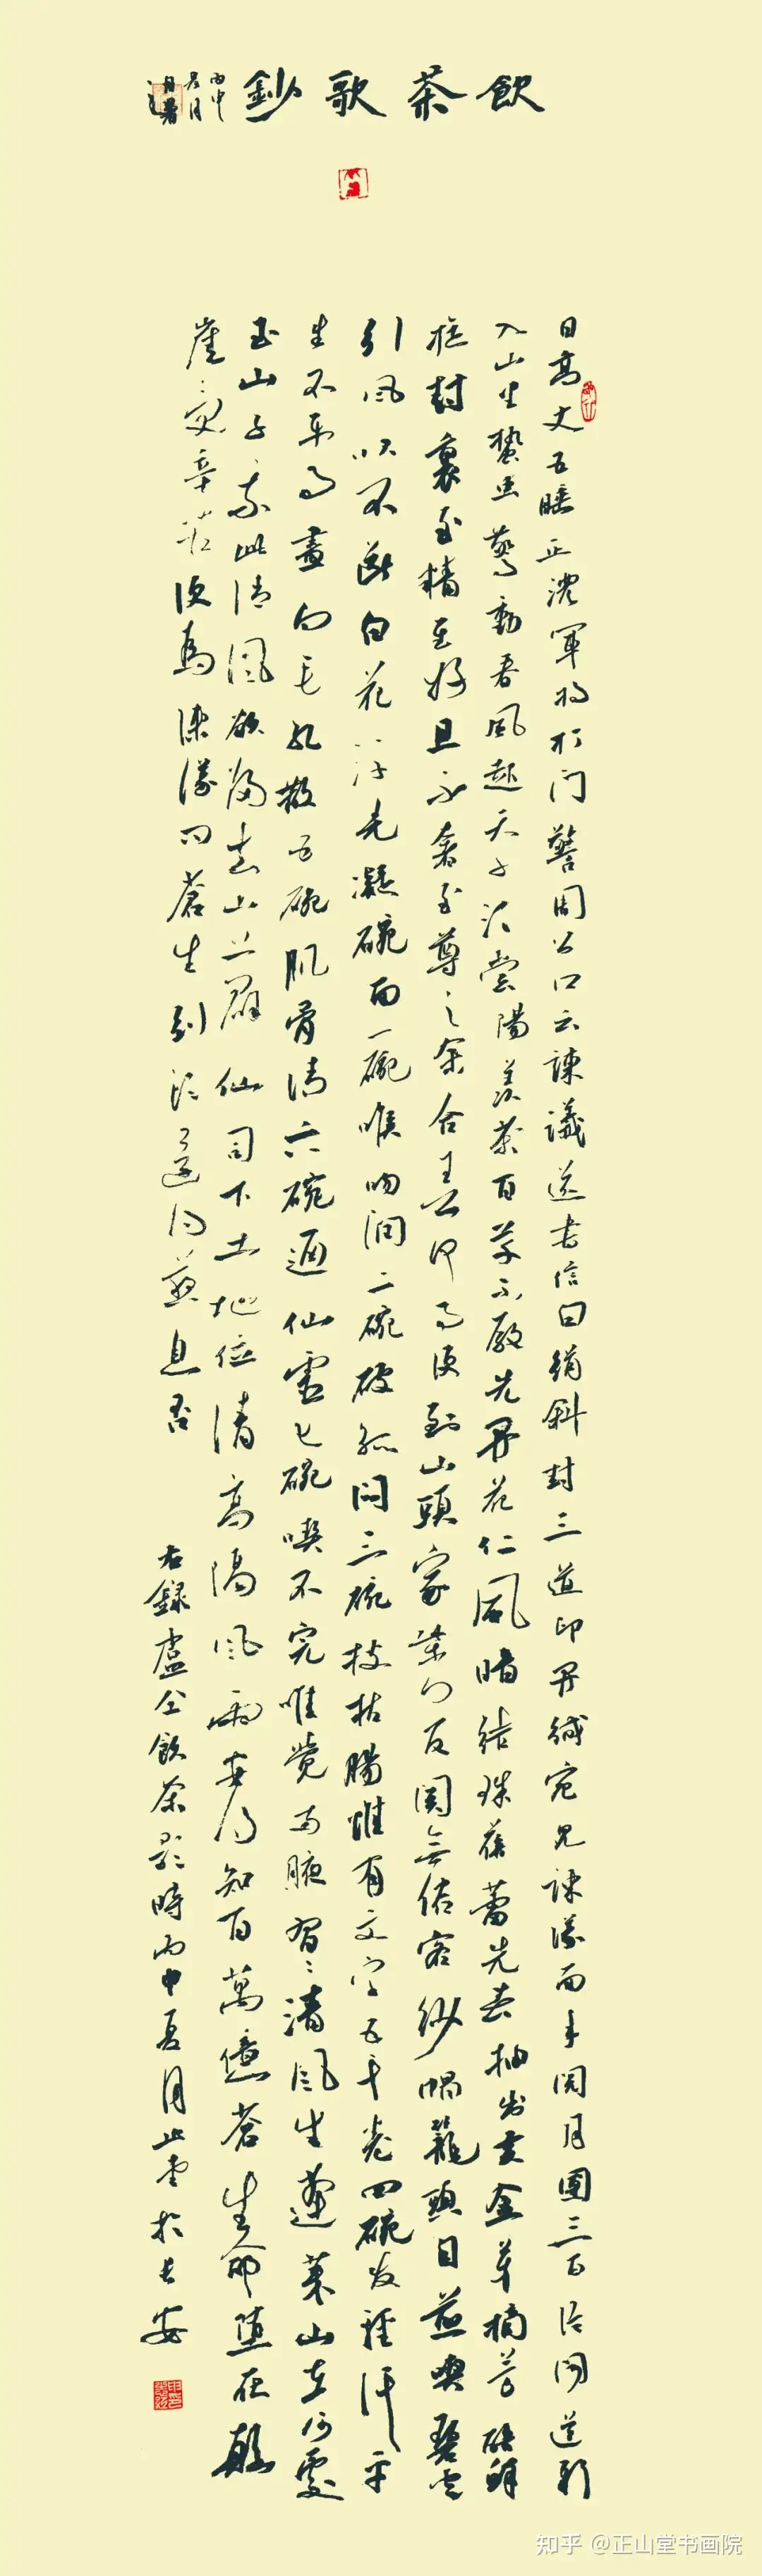 飲茶歌鈔
丙申
夏月
日高丈五睡正濃軍將打门驚周公口云諫議送書信白絹斜封三道印開緘宛見諫議面手閱月團三百片聞道新
入山坐蟄虫驚動春風起天子須嘗陽羨茶百草不敢先開花仁風暗結珠蓓蕾先春抽出黄金芽摘芳焙鮮
旋封裹至精至好且不奢至尊之余合王公何事便到山頭家柴门反関無俗客紗帽籠頭自煎喫碧雲
引風吹不斷白花浮光凝碗面一碗喉吻潤二碗破孤悶三碗枝枯腸惟有文字五千卷四碗發輕汗平
生不平事盡向毛孔散五碗肌骨清六碗通仙靈七碗喫不完唯覺兩腋習〻清風生蓬莱山在何處
玉山子乘此清風欲歸去山上群仙司下土地位清高隔風雨安得知百萬億蒼生命墮在顛
崖〻受辛苦便為諫議問蒼生到頭還得蘇息否
右録盧仝飲茶歌時丙申夏月止堂於长安
知乎 @正山堂书画院